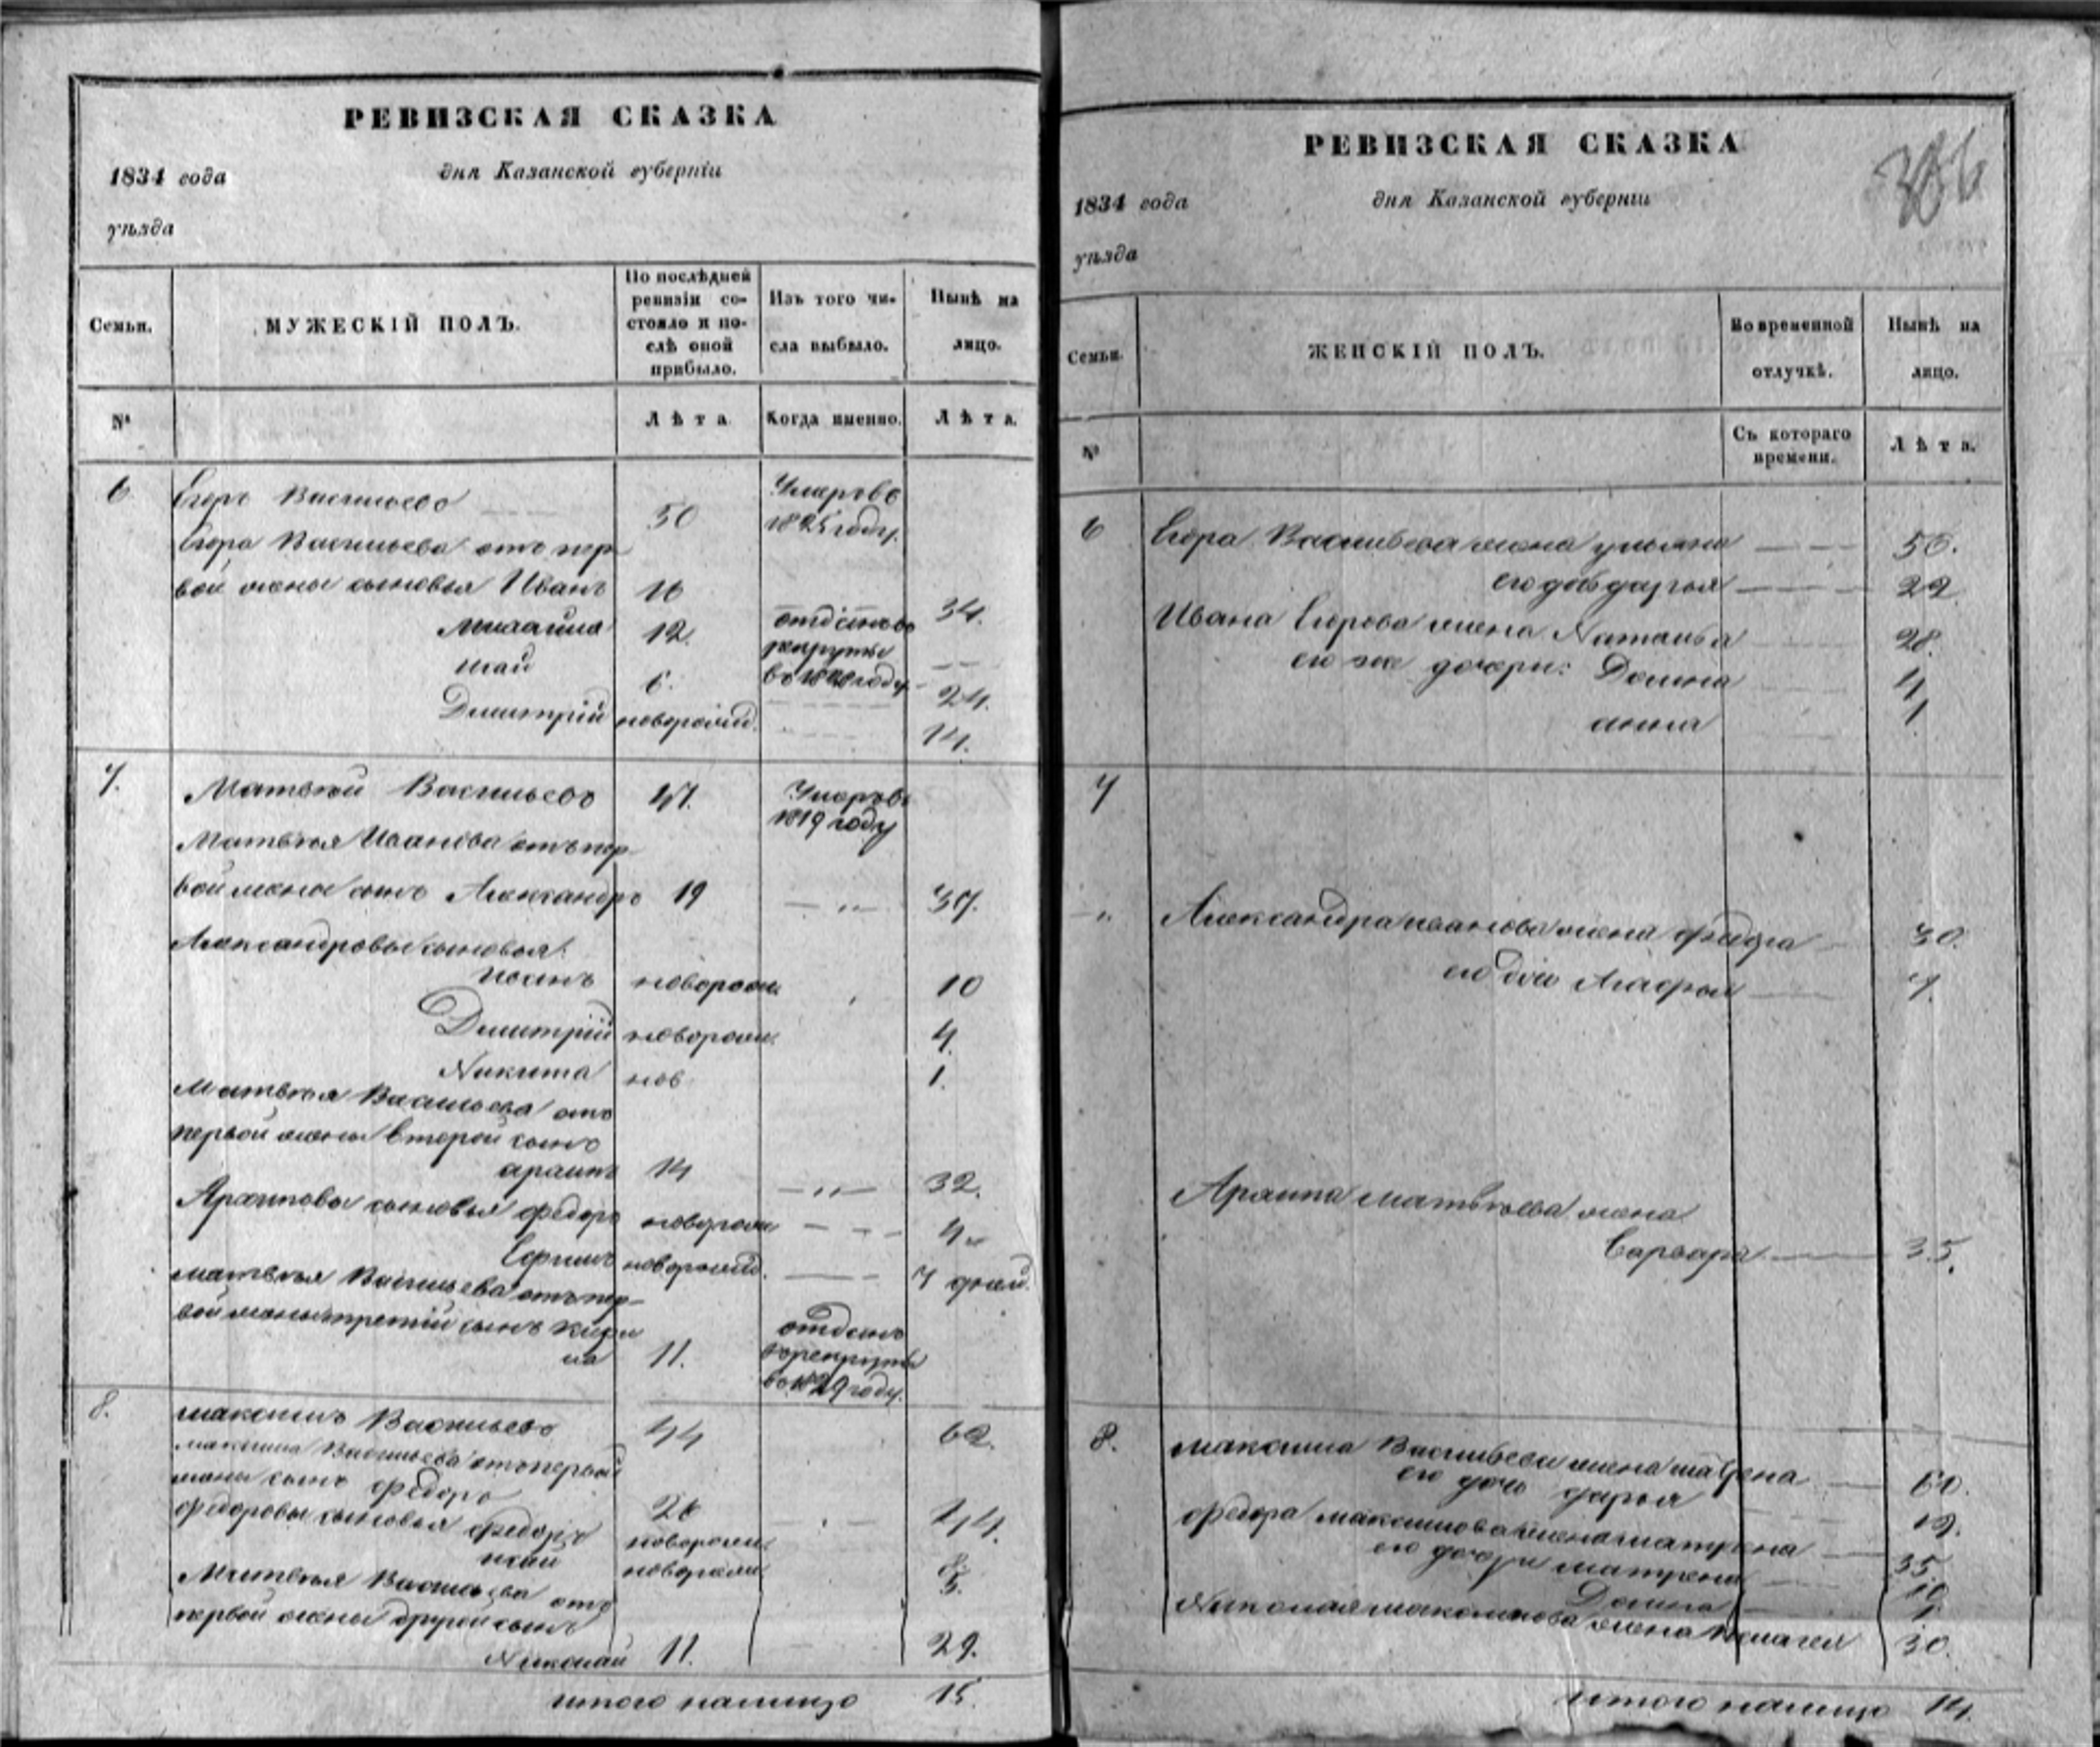 РЕВИЗСКАЯ СКАЗКА
1834 года дня Казанской губерніи
уѣзда
Семьи. МУЖЕСКІЙ ПОЛЪ. По послѣдней ревизіи состояло и послѣ оной прибыло. Изъ того числа выбыло. Нынѣ на лицо.
№ Лѣта Когда именно. Лѣта.
6 Егоръ Васильевъ 50 Умеръ въ 1825 году.
Егора Васильева отъ пер-
вой жены сыновья Иванъ 16 34.
12. отданъ въ рекруты
6. 24.
Димитрій новорожд. 14.
7. Матвей Васильевъ 47. Умеръ въ 1819 году
Матвѣя Иванова отъ пер-
вой жены сынъ Александръ 19 — „ — 37.
Александровы сыновья:
новорож. 10
Димитрій новорож. 4.
Никита нов 1.
Матвѣя Васильева отъ
первой жены второй сынъ
14 — „ — 32.
сыновья Федоръ новорож. 4
Ефимъ новорожд. 7 дней.
Матвѣя Васильева отъ пер-
вой жены третій сынъ Кири
ла 11. отданъ в рекруты во 1829 году.
8. Максимъ Васильевъ 44 62.
Максима Васильева отъ первой
жены сынъ Федоръ 26 44.
Федоровы сыновья Федоръ новорож. 8
новорож. 3.
Матвѣя Васильева отъ
первой жены другой сынъ
Николай 11. 29.
итого налицо 15.
РЕВИЗСКАЯ СКАЗКА
1834 года дня Казанской губерніи
уѣзда
Семьи. ЖЕНСКІЙ ПОЛЪ. Во временной отлучкѣ. Нынѣ на лицо.
№ Съ котораго времени. Лѣта.
6 Егора Васильева жена Ульяна 56.
его дочь Дарья 22
Ивана Егорова жена Наталья 28.
его же дочери: Домна 4
анна 1.
7
„ Александра иванова жена 30.
его дочь 7.
матвѣева жена
Варвара 35.
8. Максима Васильева жена матрена 60.
его дочь дарья 19.
Федора Максимова жена матрена 35.
его дочери матрена 10
Домна 1.
Николая максимова жена 30.
итого налицо 14.